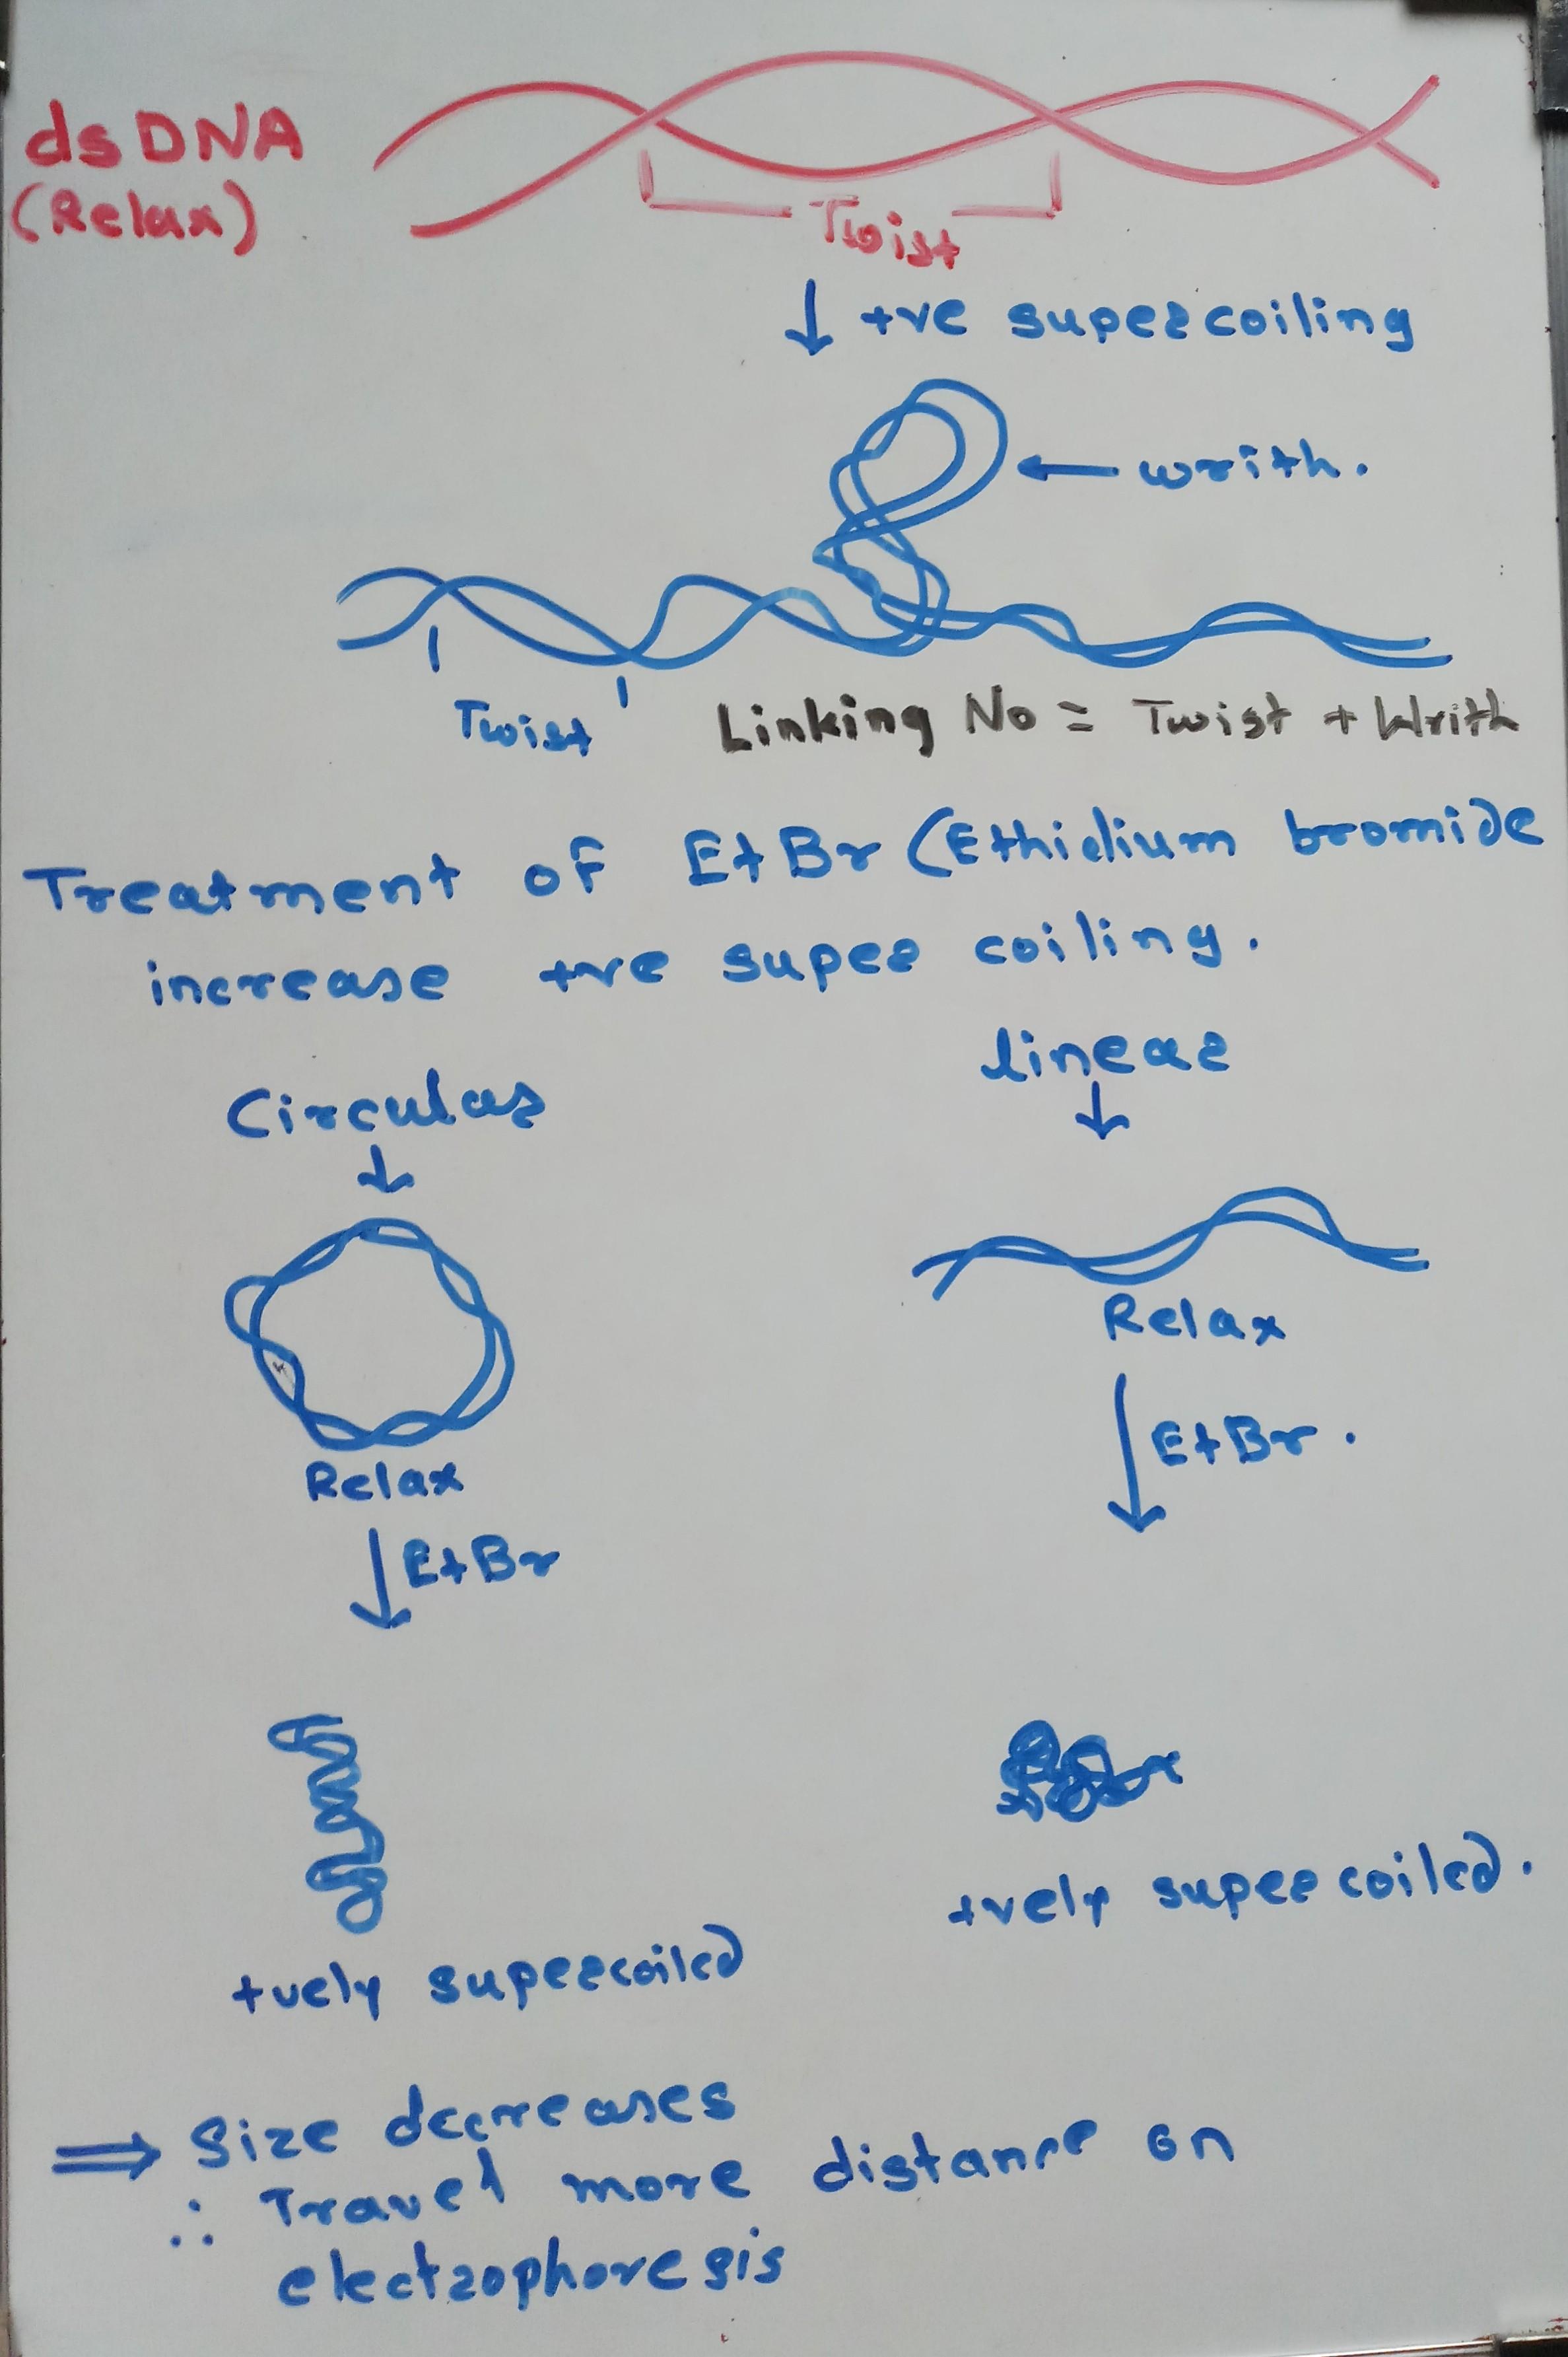 dsDNA
(Relax)
Twist
↓ +ve supercoiling
← writh.
Twist
Linking No = Twist + Writh
Treatment of EtBr (Ethidium bromide
increase +ve super coiling.
Circular
↓
Relax
↓ EtBr
+vely supercoiled
linear
↓
Relax
↓ EtBr.
+vely supercoiled.
⇒ Size decreases
∴ Travel more distance on
electrophoresis